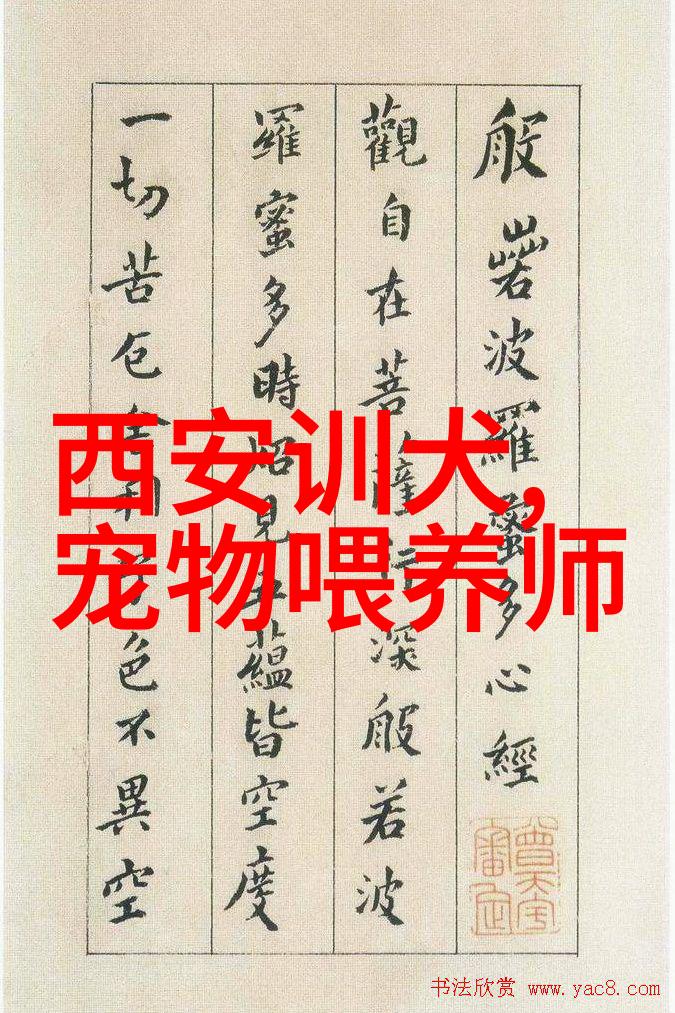 西安训犬,
宠物喂养师
般若波羅蜜多心經
觀自在菩薩行深般若波
羅蜜多時照見五蘊皆空度
一切苦厄舍利色不異空
书法欣赏 www.yac8.com